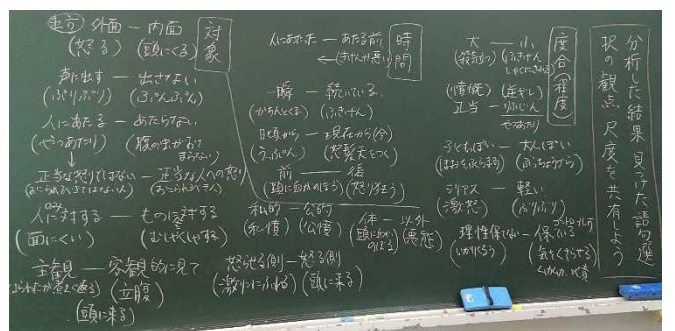 分析した結果見つけた語句選
択の観点、尺度を共有しよう
度合(程度)
大 ― 小
(憤慨) (逆ギレ)
正当 ― りふじん
やつあたり
子どもっぽい ― 大人っぽい
(ほおをふくらまる)
シリアス ― 軽い
(激怒) (ぷりぷり)
理性保てない ― 保っている
(いかりくるう)
時間
人にあたった ― あたる前
← (きげんが悪い)
一瞬 ― 続いている
(かちんとくる) (ふきげん)
日頃から ― 現在から(今)
(うっぷん) (怒髪天をつく)
前 ― 後
(頭に血がのぼる) (怒り狂う)
私的 ― 公的
(私憤) (公憤)
体 ― 以外
(頭に血がのぼる)
怒らせる側 ― 怒る側
(激りんにふれる) (頭に来る)
対象
外面 ― 内面
(怒る) (頭にくる)
声に出す ― 出さない
(ぷりぷり) (ぷんぷん)
人にあたる ― あたらない
(やつあたり) (腹の虫がおさまらない)
正当な怒りではない ― 正当な人への怒り
人に対する ― ものに対する
(面にくい) (むしゃくしゃする)
主観 ― 客観的に見て
(立腹)
(頭に来る)